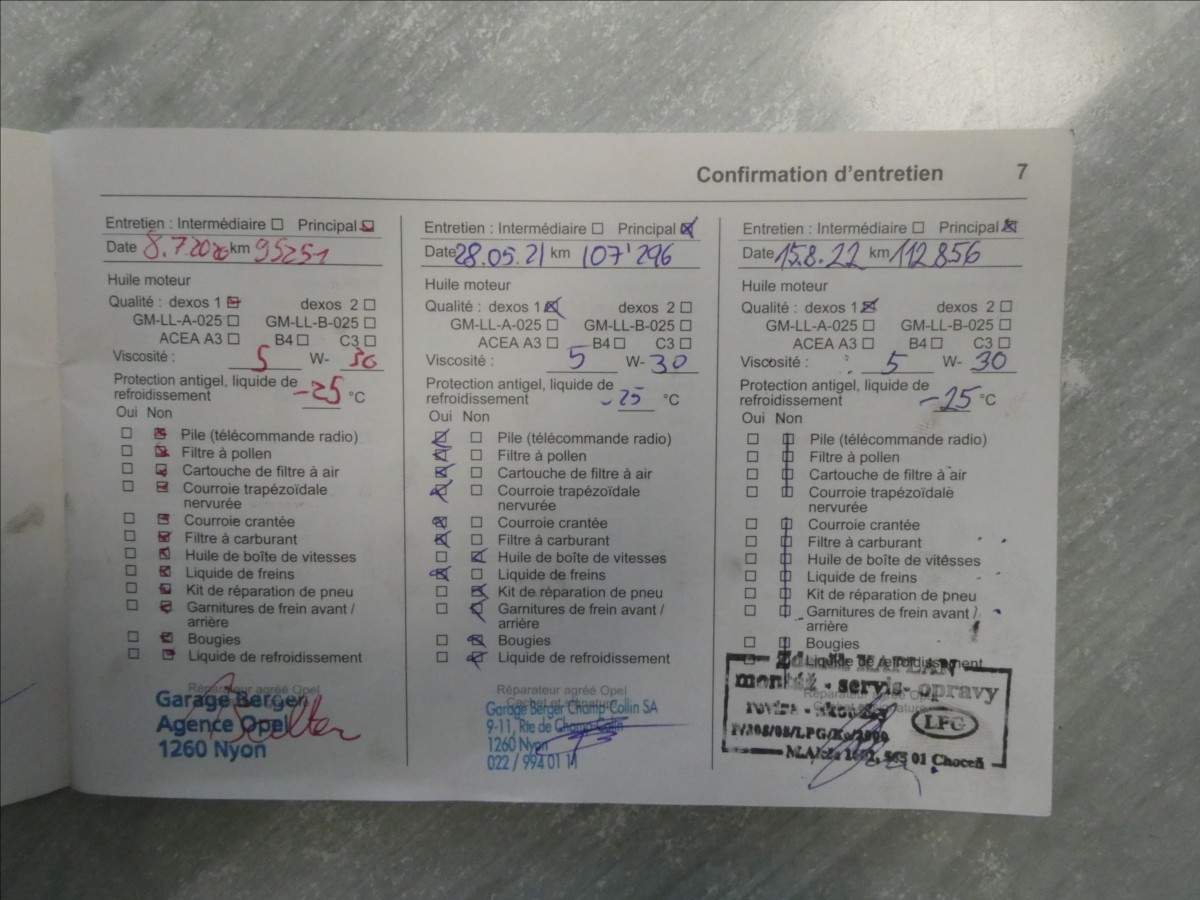 Confirmation d'entretien 7
Entretien : Intermédiaire ☐ Principal ☒
Date 8.7.2020 km 95251
Huile moteur
Qualité : dexos 1 ☒ dexos 2 ☐
GM-LL-A-025 ☐ GM-LL-B-025 ☐
ACEA A3 ☐ B4 ☐ C3 ☐
Viscosité : 5 W- 30
Protection antigel, liquide de
refroidissement -25 °C
Oui Non
☐ ☒ Pile (télécommande radio)
☐ ☒ Filtre à pollen
☐ ☒ Cartouche de filtre à air
☐ ☒ Courroie trapézoïdale
nervurée
☐ ☒ Courroie crantée
☐ ☒ Filtre à carburant
☐ ☒ Huile de boîte de vitesses
☐ ☒ Liquide de freins
☐ ☒ Kit de réparation de pneu
☐ ☒ Garnitures de frein avant /
arrière
☐ ☒ Bougies
☐ ☒ Liquide de refroidissement
Réparateur agréé Opel
Garage Berger
Agence Opel
1260 Nyon
Entretien : Intermédiaire ☐ Principal ☒
Date 28.05.21 km 107'296
Huile moteur
Qualité : dexos 1 ☒ dexos 2 ☐
GM-LL-A-025 ☐ GM-LL-B-025 ☐
ACEA A3 ☐ B4 ☐ C3 ☐
Viscosité : 5 W- 30
Protection antigel, liquide de
refroidissement -25 °C
Oui Non
☒ ☐ Pile (télécommande radio)
☒ ☐ Filtre à pollen
☒ ☐ Cartouche de filtre à air
☒ ☐ Courroie trapézoïdale
nervurée
☒ ☐ Courroie crantée
☒ ☐ Filtre à carburant
☐ ☒ Huile de boîte de vitesses
☒ ☐ Liquide de freins
☐ ☒ Kit de réparation de pneu
☐ ☒ Garnitures de frein avant /
arrière
☐ ☒ Bougies
☐ ☒ Liquide de refroidissement
Réparateur agréé Opel
Cachet et signature
Garage Berger Champ Collin SA
9-11, Rte de Champ-Colin
1260 Nyon
022 / 994 01 11
Entretien : Intermédiaire ☐ Principal ☒
Date 15.8.22 km 112856
Huile moteur
Qualité : dexos 1 ☒ dexos 2 ☐
GM-LL-A-025 ☐ GM-LL-B-025 ☐
ACEA A3 ☐ B4 ☐ C3 ☐
Viscosité : 5 W- 30
Protection antigel, liquide de
refroidissement -25 °C
Oui Non
☐ ☐ Pile (télécommande radio)
☐ ☐ Filtre à pollen
☐ ☐ Cartouche de filtre à air
☐ ☐ Courroie trapézoïdale
nervurée
☐ ☐ Courroie crantée
☐ ☐ Filtre à carburant
☐ ☐ Huile de boîte de vitesses
☐ ☐ Liquide de freins
☐ ☐ Kit de réparation de pneu
☐ ☐ Garnitures de frein avant /
arrière
☐ ☐ Bougies
☐ ☐ Liquide de refroidissement
KAPLAN
montáž - servis - opravy
Réparateur agréé
LPG
565 01 Choceň